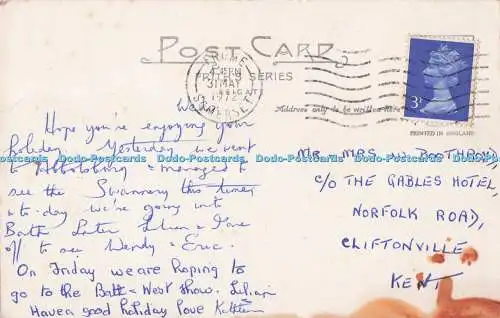 POST CARD
FROME
31 MAY
1972
SOMERSET
SERIES
Address only to be written here
3P
PRINTED IN ENGLAND
Wed
Hope you're enjoying your
holiday. Yesterday we went
to Abbotsbury & managed to
see the Swannery this time,
& to-day we're going into
Bath. Later Lilian &
off to see Wendy & Eric.
On Friday we are hoping to
go to the Bath & West show. Lilian
Have a good holiday love Kathleen
MR. MRS. W.
C/O THE GABLES HOTEL,
NORFOLK ROAD,
CLIFTONVILLE
KENT
Dodo-Postcards Dodo-Postcards Dodo-Postcards Dodo-Postcards Dodo-Postcards Dodo-Postcards